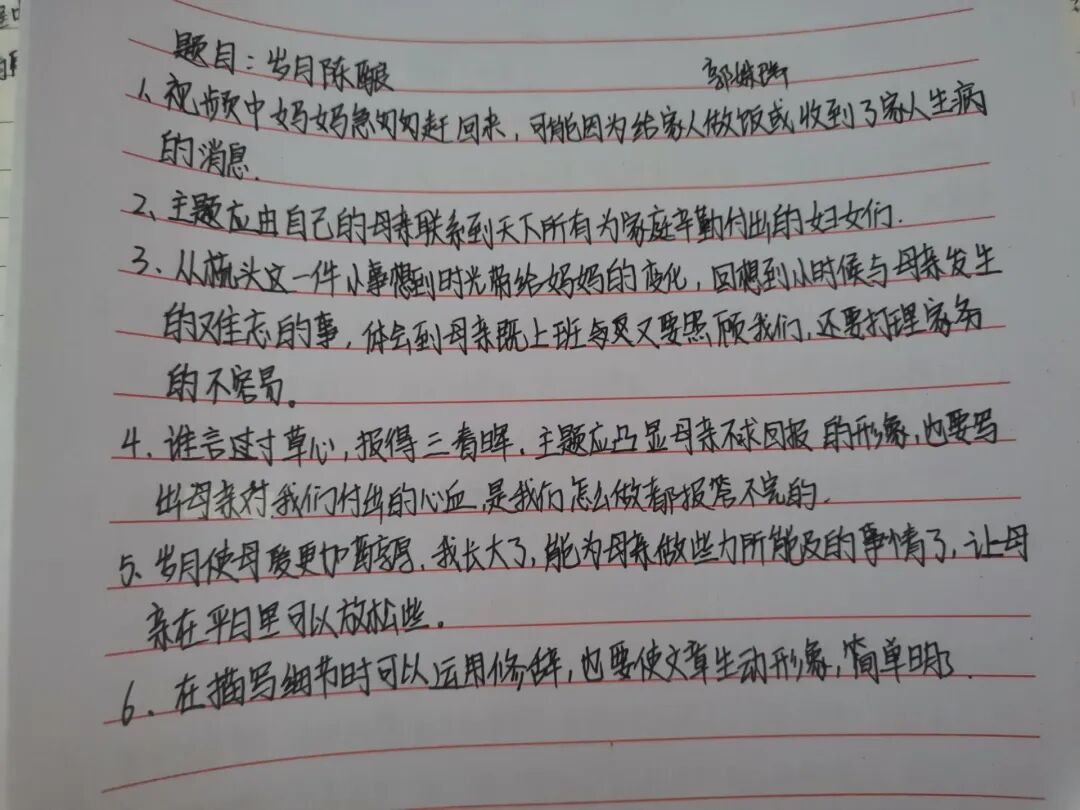 题目：岁月陈酿
1、视频中妈妈急匆匆赶回来，可能因为给家人做饭或收到了家人生病
的消息.
2、主题应由自己的母亲联系到天下所有为家庭辛勤付出的妇女们.
3、从梳头这一件小事想到时光带给妈妈的变化，回想到小时候与母亲发生
的难忘的事，体会到母亲既上班又要照顾我们，还要打理家务
的不容易。
4、谁言过寸草心，报得三春晖.主题应凸显母亲不求回报的形象，也要写
出母亲对我们付出的心血是我们怎么做都报答不完的.
5、岁月使母爱更加醇厚.我长大了，能为母亲做些力所能及的事情了，让母
亲在平日里可以放松些。
6、在描写细节时可以运用修辞，也要使文章生动形象，简单明了.